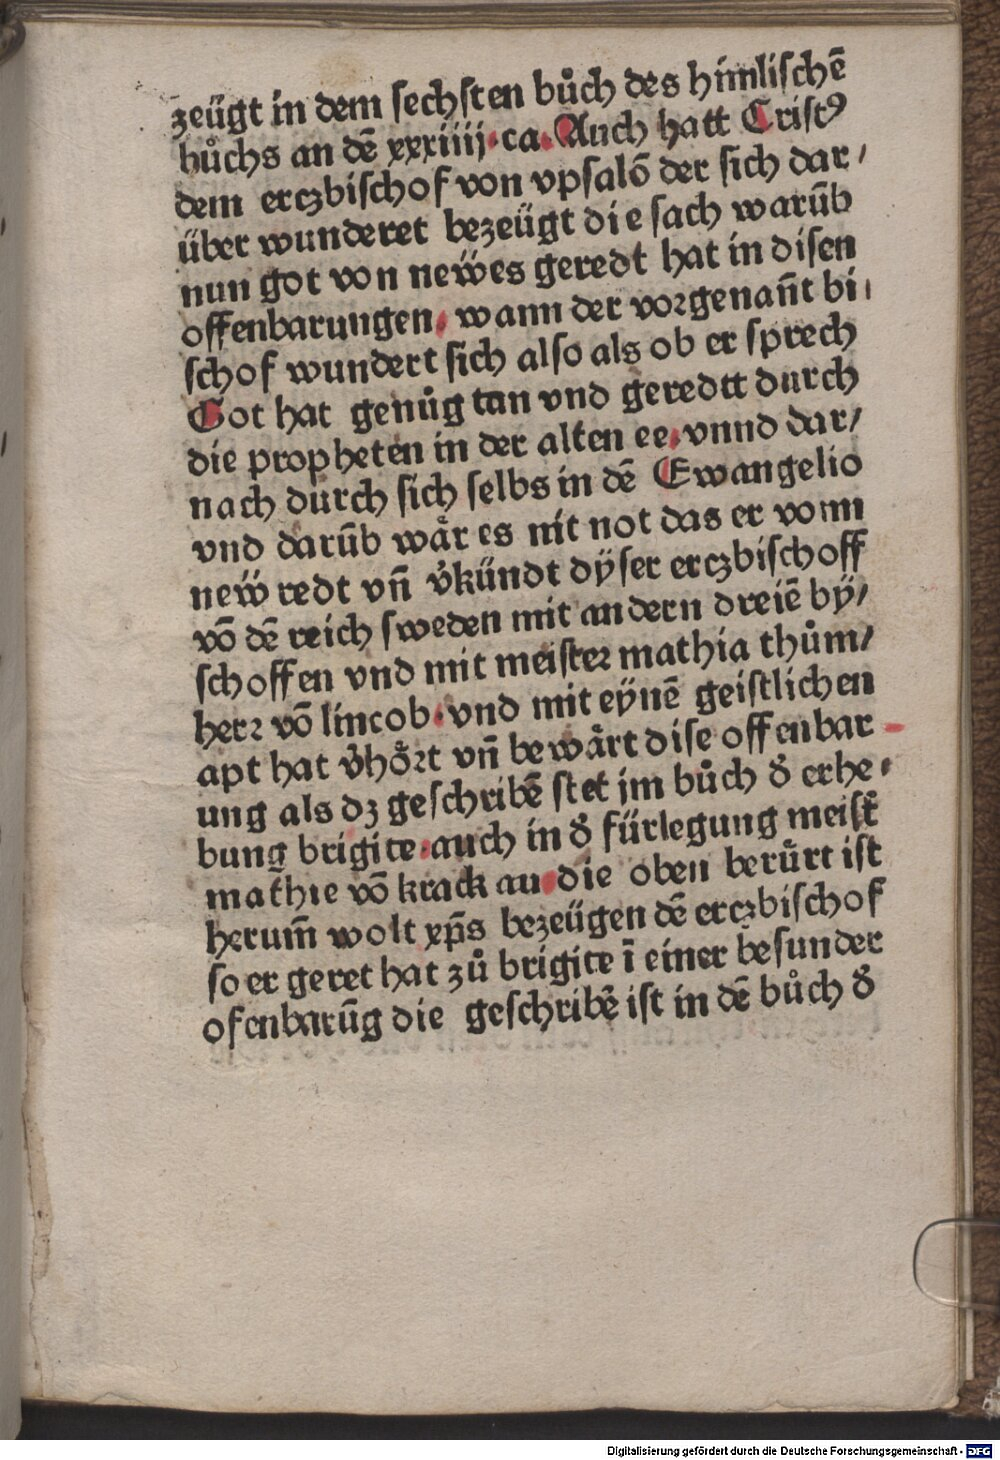 zeügt in dem sechsten bůch des himlischē
bůchs an dē xxxiiij·ca·Auch hatt Cristꝰ
dem erczbischof von vpsalō der sich dar/
über wunderet bezeügt die sach warūb
nun got von neẅes geredt hat in disen
offenbarungen· wann der vorgenañt bi/
schof wundert sich also als ob er sprech
Got hat genůg tan vnd geredtt durch
die propheten in der alten ee·vnnd dar/
nach durch sich selbs in dē Ewangelio
vnd darūb wår es nit not das er vonn
neẅ redt vñ v̉kündt dÿser erczbischoff
vō dē reich sweden mit andern dreiē bÿ/
schoffen vnd mit meister mathia thům/
herr vō lincob·vnd mit eÿnē geistlichen
apt hat v̉hőrt vñ bewårt dise offenbar
ung als dz geschribē stet jm bůch d̓ erhe/
bung brigite·auch in d̓ fürlegung meist̓
mathie vō krackau·die oben berůrt ist
herum̄ wolt xp̄s bezeügen dē erczbischof
so er geret hat zů brigite ī einer besunder
ofenbarūg die geschribē ist in dē bůch d̓
Digitalisierung gefördert durch die Deutsche Forschungsgemeinschaft - DFG